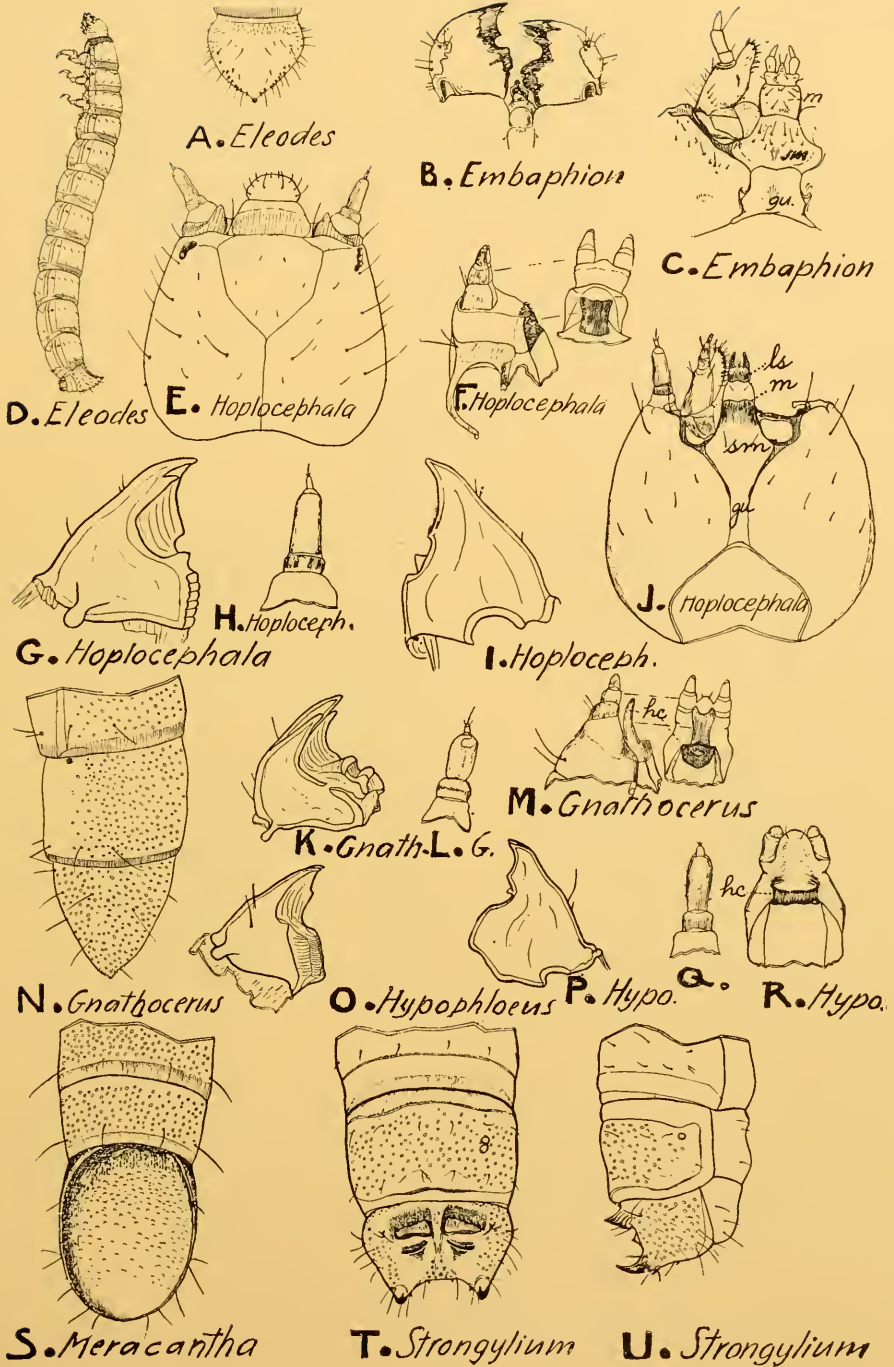 A. Eleodes
B. Embaphion
m
sm
gu.
C. Embaphion
D. Eleodes
E. Hoplocephala
F. Hoplocephala
ls
m
sm
gu
J. Hoplocephala
G. Hoplocephala
H. Hoploceph.
I. Hoploceph.
hc
K. Gnath.
L. G.
M. Gnathocerus
hc
N. Gnathocerus
O. Hypophloeus
P. Hypo.
Q.
R. Hypo.
S. Meracantha
T. Strongylium
U. Strongylium